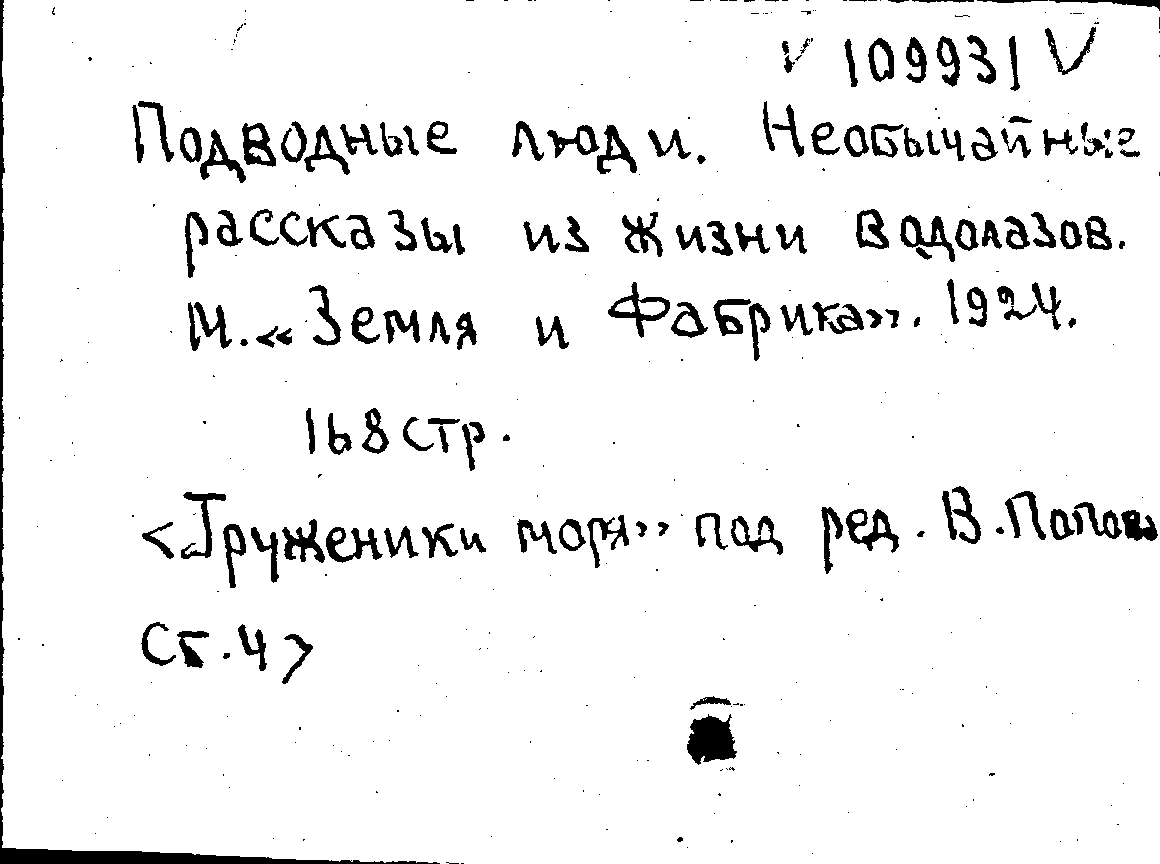 V 109931 V
Подводные люди. Необычайные
рассказы из жизни водолазов.
М. «Земля и Фабрика». 1924.
168 стр.
<"Труженики моря" под ред. В. Попова
Сб. 4>